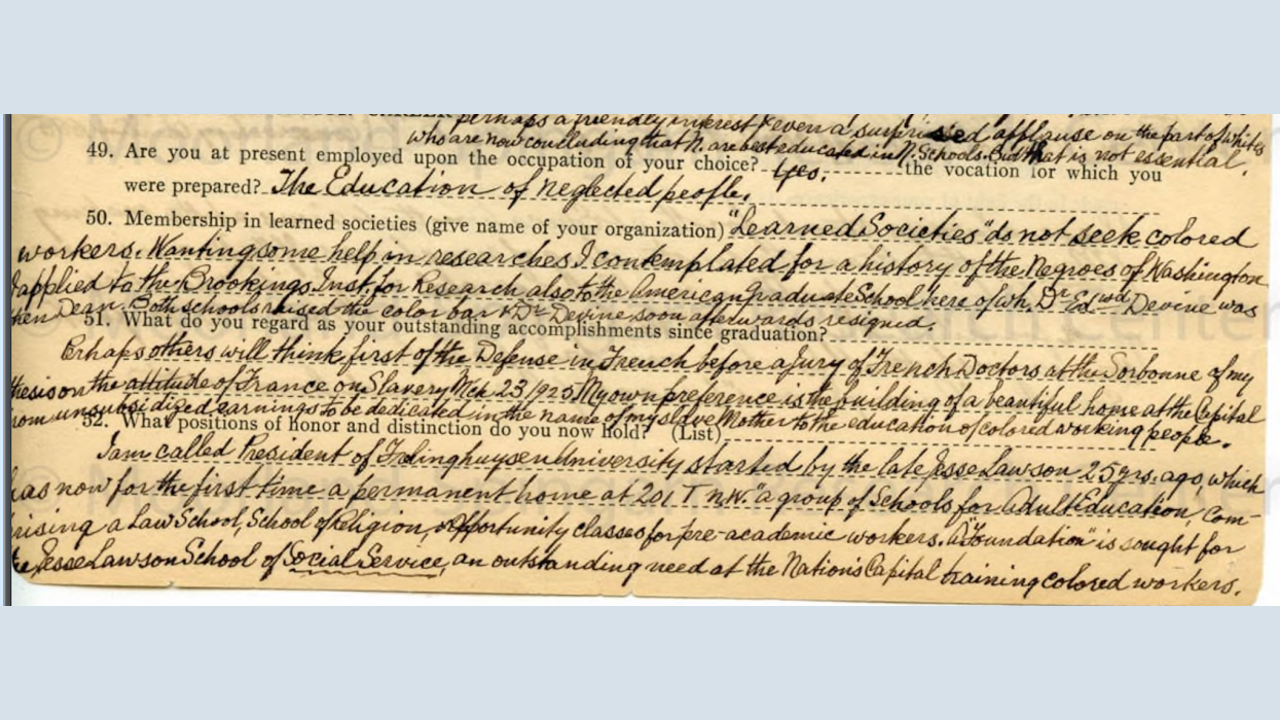 perhaps a friendly interest & even a surprised applause on the part of whites
who are now concluding that N. are best educated in N. Schools. But that is not essential.
49. Are you at present employed upon the occupation of your choice? Yes. the vocation for which you
were prepared? The Education of neglected people.
50. Membership in learned societies (give name of your organization) "Learned Societies" do not seek colored
workers. Wanting some help in researches I contemplated for a history of the Negroes of Washington
I applied to the Brookings Inst. for Research also to the American graduate School here of wh. Dr Edwd Devine was
then Dean. Both schools raised the color bar & Dr Devine soon afterwards resigned.
51. What do you regard as your outstanding accomplishments since graduation?
Perhaps others will think first of the Defense in French before a Jury of French Doctors at the Sorbonne of my
thesis on the attitude of France on Slavery Mch 23/1925 My own preference is the building of a beautiful home at the Capital
from unsubsidized earnings to be dedicated in the name of my slave Mother to the education of colored working people.
52. What positions of honor and distinction do you now hold? (List)
I am called President of Frelinghuysen University started by the late Jesse Lawson 25 yrs. ago, which
has now for the first time a permanent home at 201 T N.W. "a group of Schools for Adult Education, com-
prising a Law School, School of Religion, opportunity classes for pre-academic workers. A "Foundation" is sought for
the Jesse Lawson School of Social Service, an outstanding need at the Nation's Capital training colored workers.